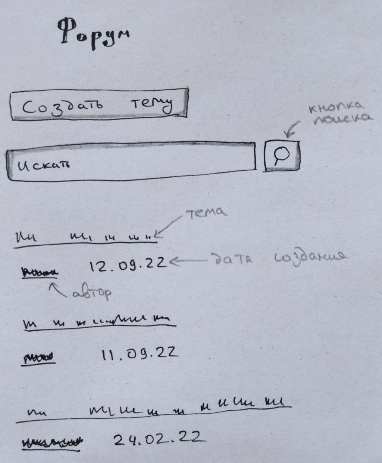 Форум
Создать тему
кнопка
поиска
Искать
тема
12.09.22
дата создания
автор
11.09.22
24.02.22